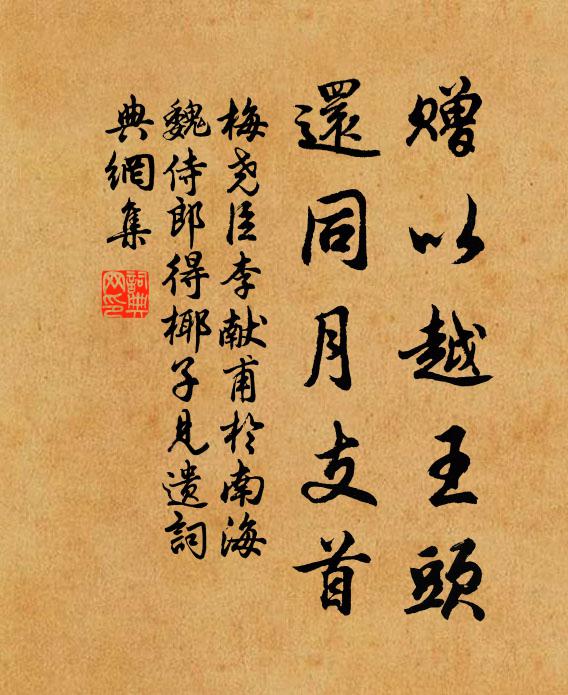 赠以越王頭
還同月支首
梅尧臣李献甫於南海
魏侍郎得椰子見遗詞
典網集
詞典网印